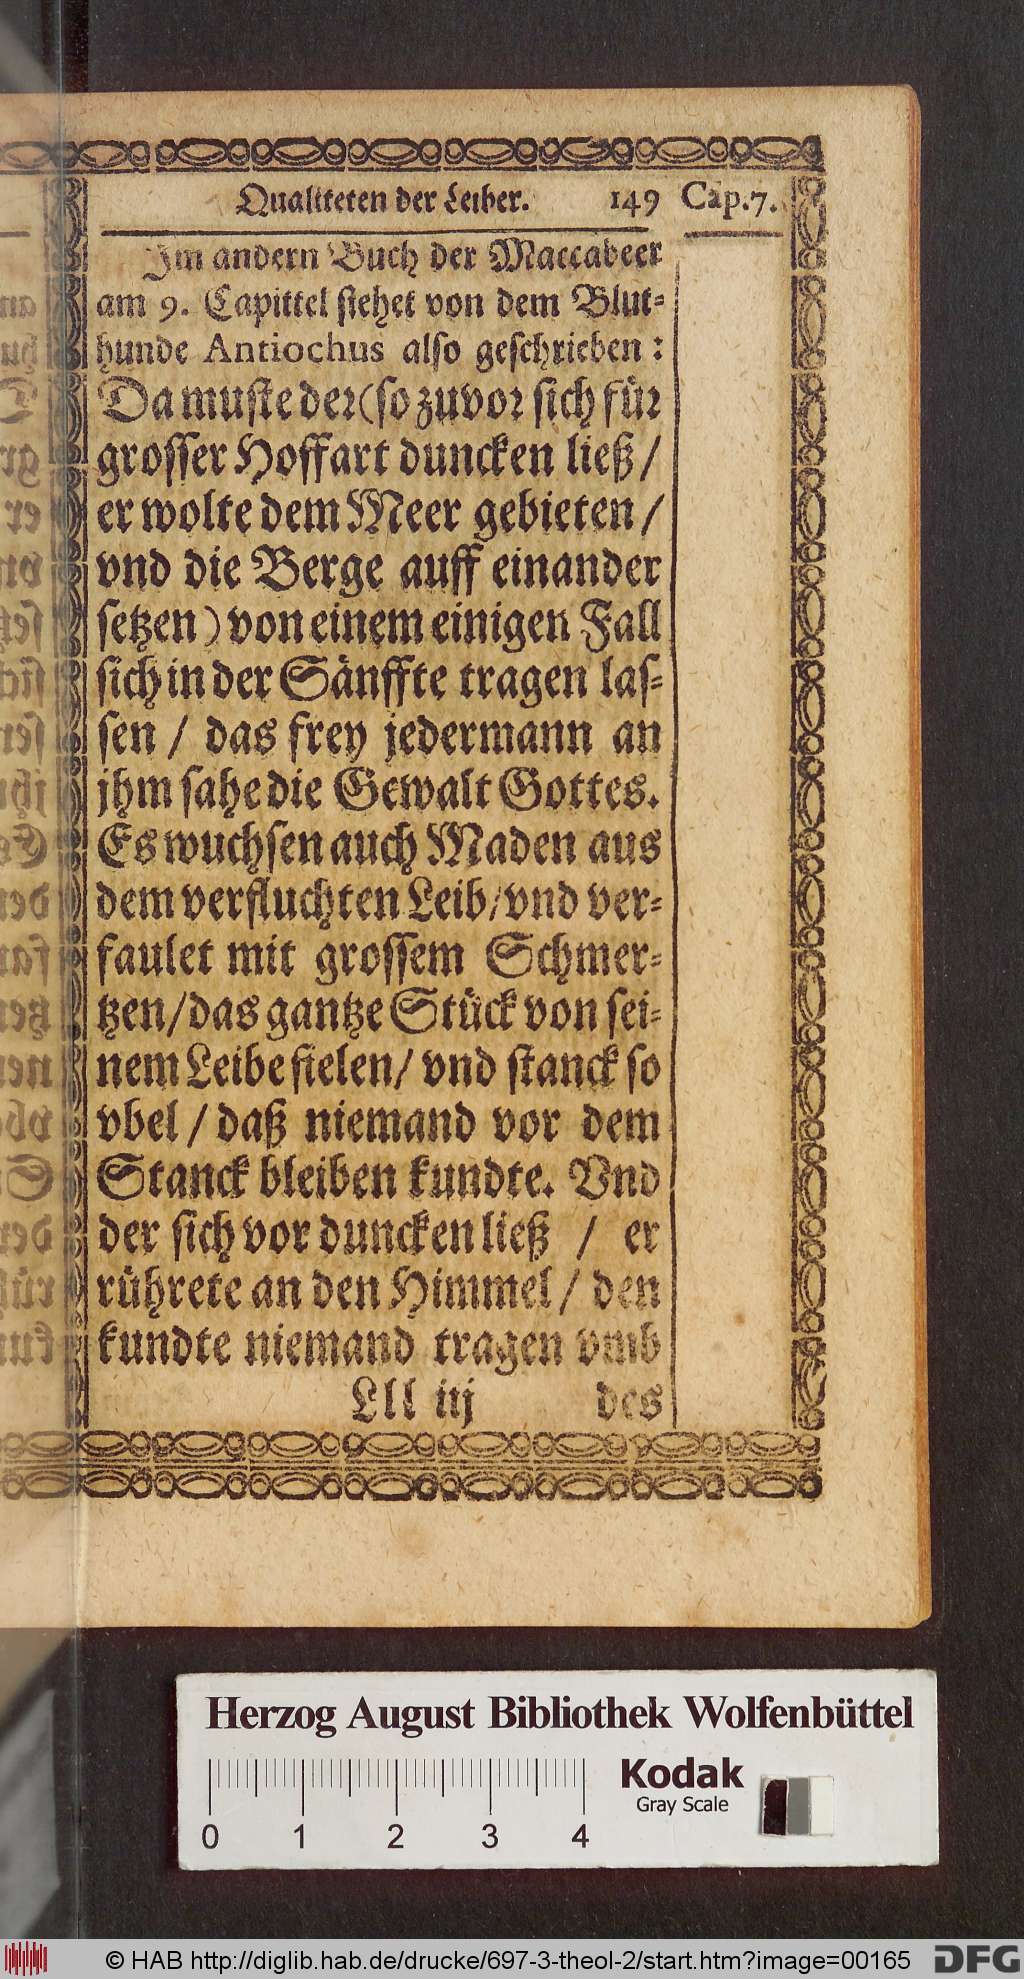 Qualiteten der Leiber. 149 Cap.7.
Im andern Buch der Maccabeer
am 9. Capittel stehet von dem Blut-
hunde Antiochus also geschrieben:
Da muste der (so zuvor sich für
grosser Hoffart duncken ließ /
er wolte dem Meer gebieten /
vnd die Berge auff einander
setzen) von einem einigen Fall
sich in der Sänffte tragen las-
sen / das frey jedermann an
jhm sahe die Gewalt Gottes.
Es wuchsen auch Maden aus
dem verfluchten Leib / vnd ver-
faulet mit grossem Schmer-
tzen / das gantze Stück von sei-
nem Leibe fielen / vnd stanck so
vbel / daß niemand vor dem
Stanck bleiben kundte. Vnd
der sich vor duncken ließ / er
rührete an den Himmel / den
kundte niemand tragen vmb
Lll iij des
Herzog August Bibliothek Wolfenbüttel
Kodak
Gray Scale
0 1 2 3 4
© HAB http://diglib.hab.de/drucke/697-3-theol-2/start.htm?image=00165 DFG